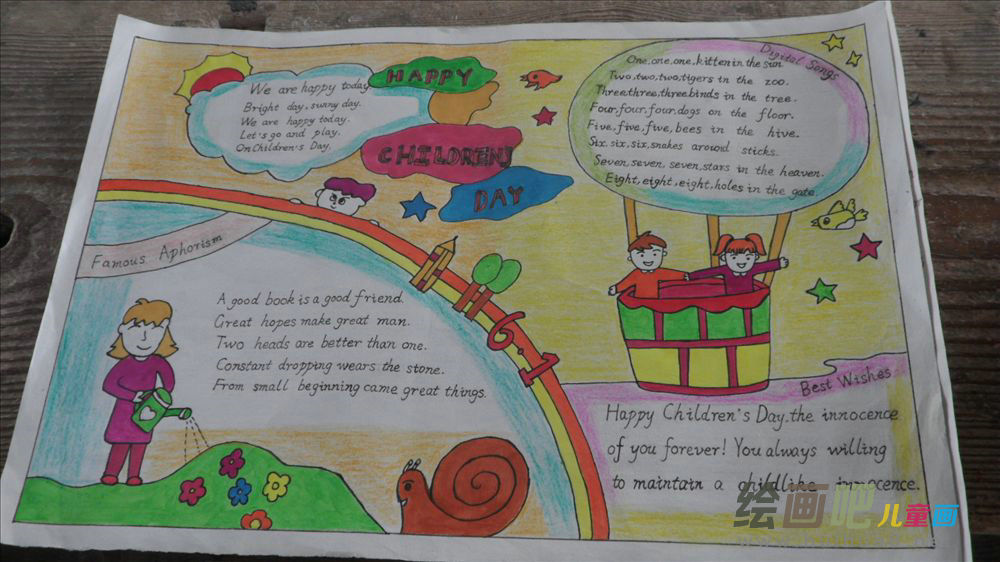 We are happy today
Bright day, sunny day.
We are happy today.
Let's go and play.
On Children's Day.
HAPPY
CHILDREN'S
DAY
Digital Songs
One,one,one,kitten in the sun.
Two,two,two,tigers in the zoo.
Three,three,three,birds in the tree.
Four,four,four,dogs on the floor.
Five,five,five,bees in the hive.
Six,six,six,snakes around sticks.
Seven,seven,seven,stars in the heaven.
Eight,eight,eight,holes in the gate.
Famous Aphorism
A good book is a good friend.
Great hopes make great man.
Two heads are better than one.
Constant dropping wears the stone.
From small beginning came great things.
6.1
Best Wishes
Happy Children's Day.the innocence
of you forever! You always willing
to maintain a childlike innocence.
绘画吧儿童画